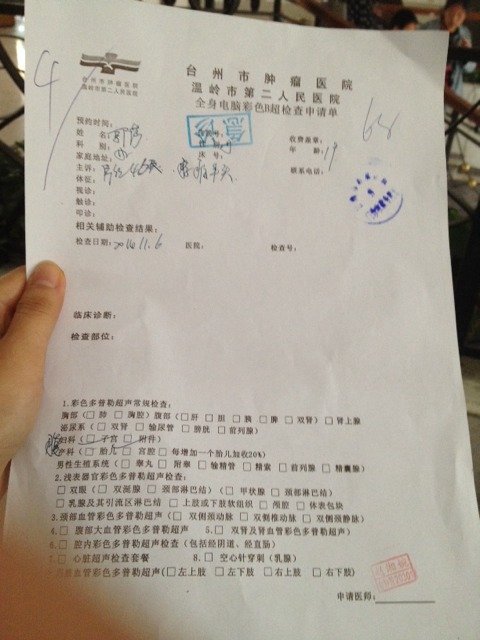 台州市肿瘤医院
温岭市第二人民医院
台州市肿瘤医院
温岭市第二人民医院
全身电脑彩色B超检查申请单
预约时间：
急诊
姓名：
收费盖章：
科别：
床号：
年龄：19
家庭地址：
联系电话：
主诉：
体征：
视诊：
触诊：
叩诊：
相关辅助检查结果：
检查日期：2014.11.6 医院： 检查号：
临床诊断：
检查部位：
1.彩色多普勒超声常规检查：
胸部（□肺 □胸腔）腹部（□肝 □胆 □胰 □脾 □双肾）□肾上腺
泌尿系（□双肾 □输尿管 □膀胱 □前列腺）
妇科（□子宫 □附件）
产科（□胎儿 □宫腔 □每增加一个胎儿加收20%）
男性生殖系统（□睾丸 □附睾 □输精管 □精索 □前列腺 □精囊腺）
2.浅表器官彩色多普勒超声检查：
□双眼（□双涎腺 □颈部淋巴结）（□甲状腺 □颈部淋巴结）
□乳腺及其引流区淋巴结 □上肢或下肢软组织 □颅腔 □体表包块
3.颈部血管彩色多普勒超声（□双侧颈动脉 □双侧椎动脉 □双侧颈静脉）
4.□腹部大血管彩色多普勒超声 5.□双肾及肾血管彩色多普勒超声）
6.□腔内彩色多普勒超声检查（包括经阴道、经直肠）
7.□心脏超声检查套餐 8.□空心针穿刺（乳腺）
四肢血管彩色多普勒超声(□左上肢 □左下肢 □右上肢 □右下肢）
申请医师：